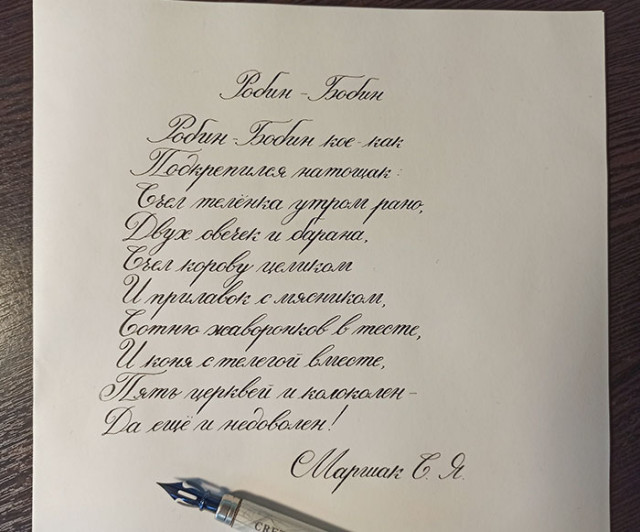 Робин - Бобин
Робин - Бобин кое-как
Подкрепился натощак:
Съел телёнка утром рано,
Двух овечек и барана,
Съел корову целиком
И прилавок с мясником,
Сотню жаворонков в тесте,
И коня с телегой вместе,
Пять церквей и колоколен -
Да ещё и недоволен!
Маршак С. Я.